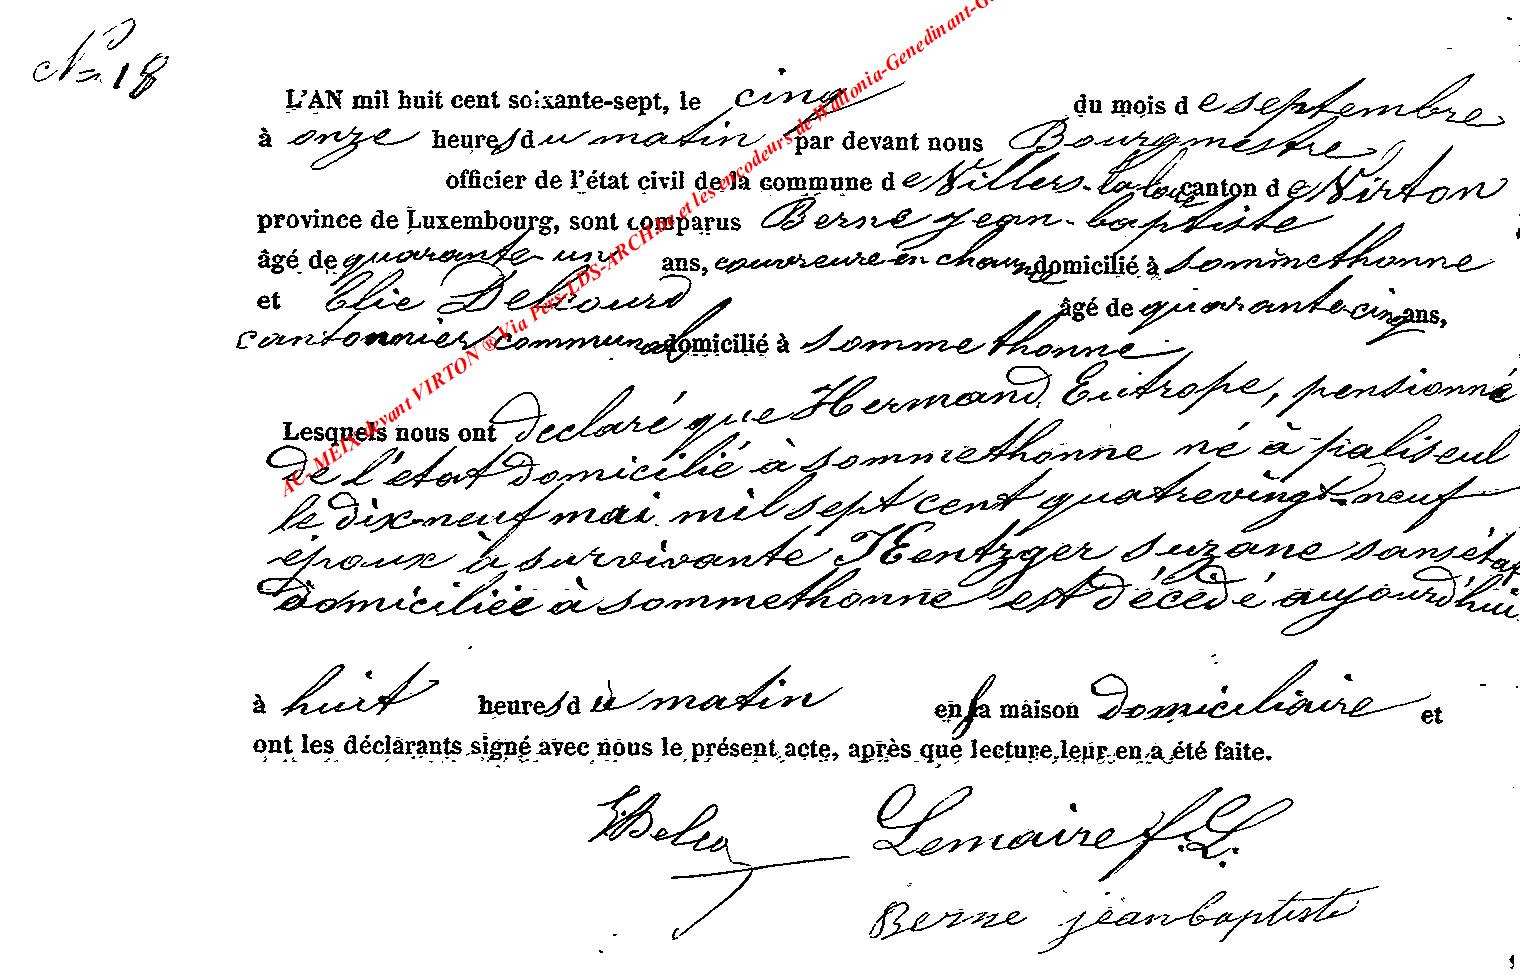 No 18
L'AN mil huit cent soixante-sept, le cinq du mois de septembre
à onze heures du matin par devant nous Bourgmestre
officier de l'état civil de la commune de Villers-la-loue canton de Virton
province de Luxembourg, sont comparus Berne jean-baptiste
âgé de quarante-un ans, couvreure en chaume domicilié à sommethonne
et Elie Delcourd âgé de quarante-cinq ans,
cantonnier communal domicilié à sommethonne
Lesquels nous ont declaré que Hermand Eutrope, pensionné
de l'état domicilié à sommethonne né à paliseul
le dix-neuf mai mil sept cent quatrevingt-neuf
époux à survivante Hentzger suzane sans état
domiciliée à sommethonne est décédé aujourd'hui
à huit heures du matin en sa maison domiciliaire et
ont les déclarants signé avec nous le présent acte, après que lecture leur en a été faite.
Lemaire f. L.
Berne jeanbaptiste
AC- MEIX-devant VIRTON ® Via Pers-LDS-ARCH.be et les encodeurs de Wallonia-Genedinant-G